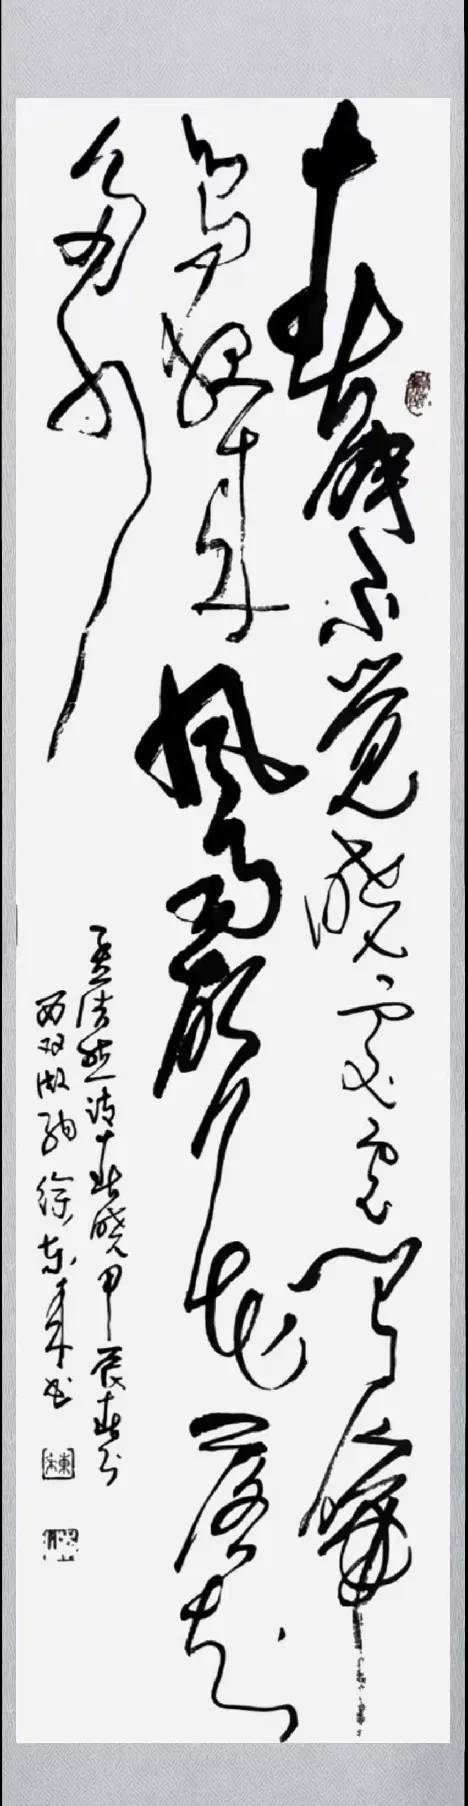 春眠不觉晓處處闻啼
鸟夜来风雨声花落知
多少
孟浩然诗春晓甲辰春分
西双版纳徐东来书